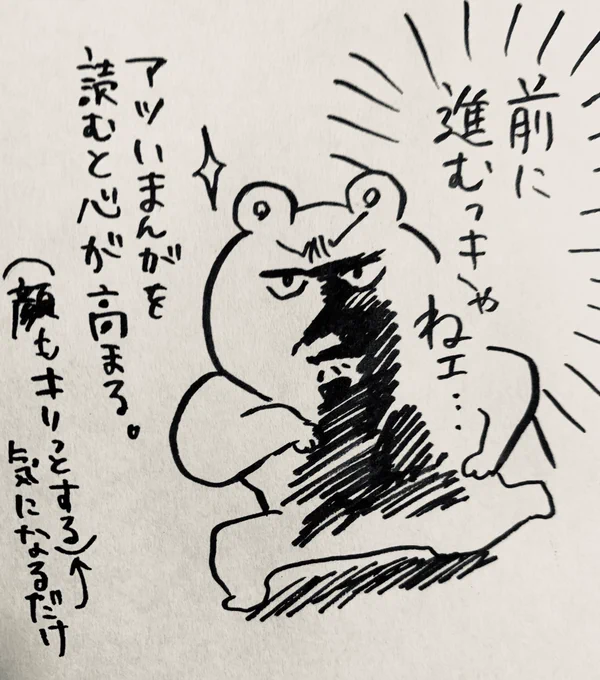 前に
進むっキャ
ねエ…
アツいまんがを
読むと心が高まる。
(顔もキリっとする)
↑
気になるだけ